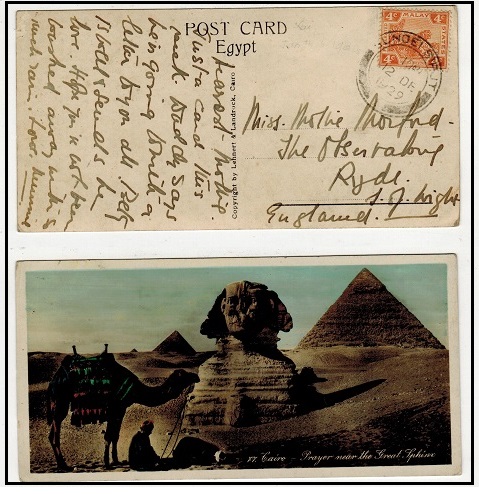 POST CARD
Egypt
Dearest Mollie
Just a card this
week. Daddy says
he is going to write a
letter to you all. Betty
is well & sends her
love. Hope you're not been
washed away with so
much rain. Love. Mummy
Copyright by Lehnert & Landrock, Cairo
4c MALAY 4c
STATES
SUNGEI
2 DE
1929
Miss. Mollie
The Observatory
Ryde.
I. of Wight
England.
87. Cairo - Prayer near the Great Sphinx